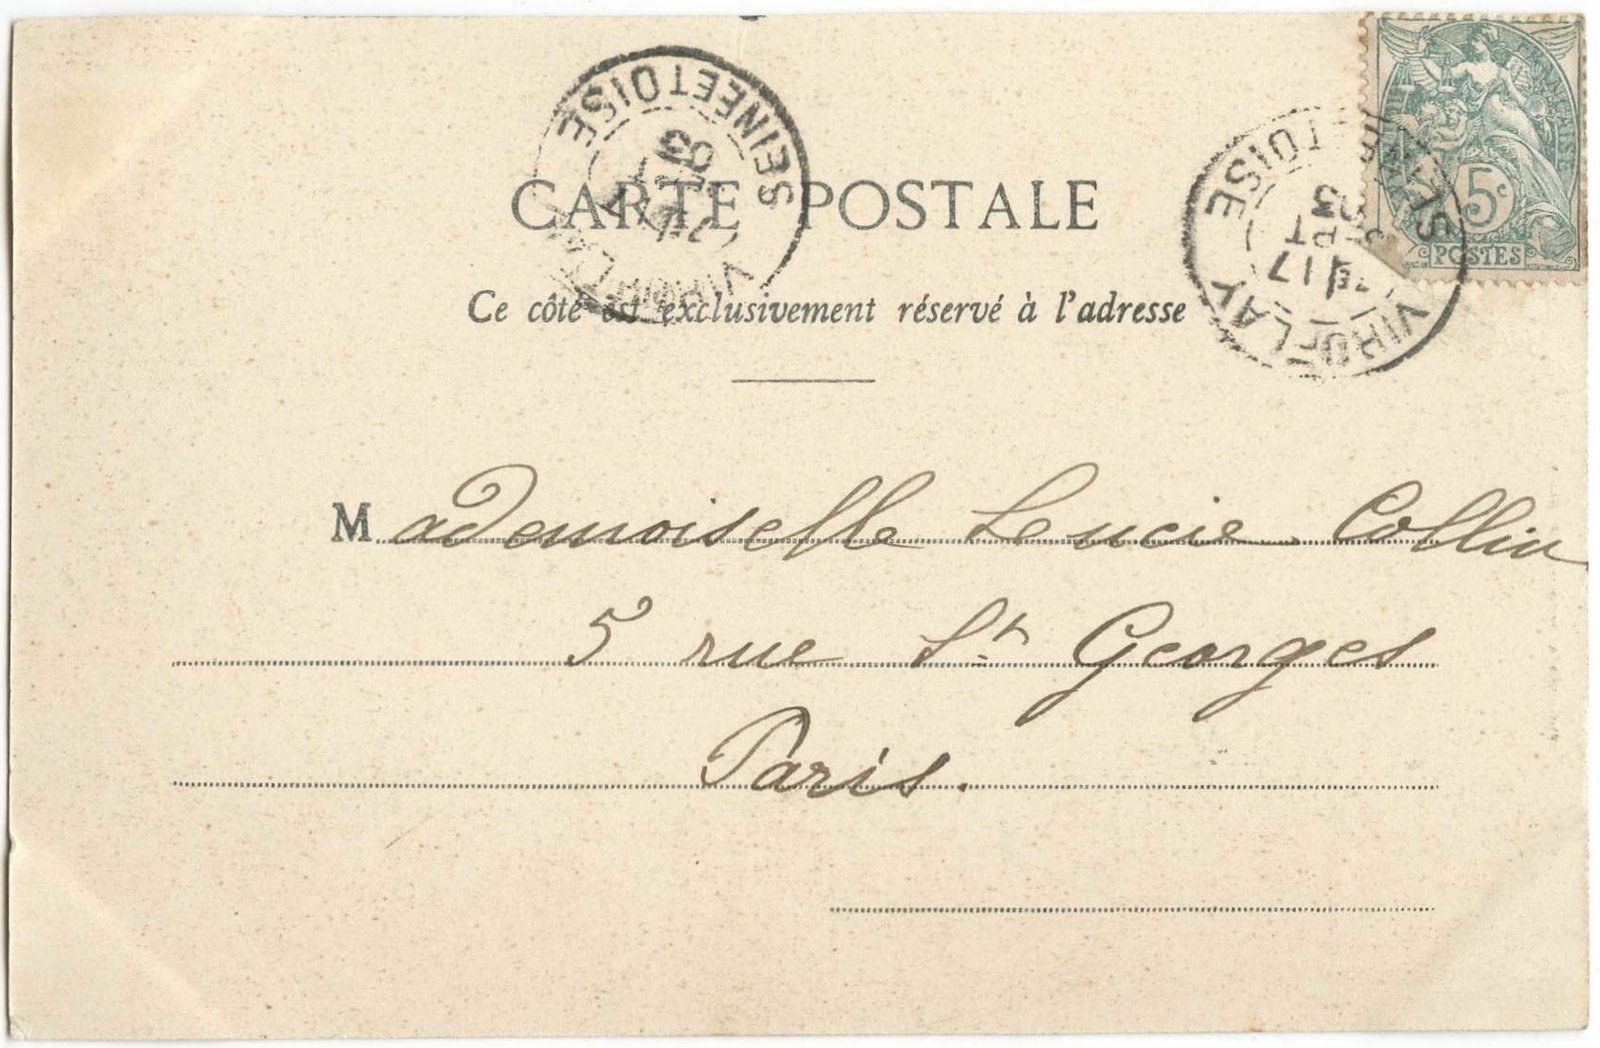 CARTE POSTALE
Ce côté est exclusivement réservé à l'adresse
Mademoiselle Lucie Collin
5 rue St Georges
Paris.
SEINE ET OISE
VIROFLAY
17
SEPT
03
VIROFLAY
5c
POSTES